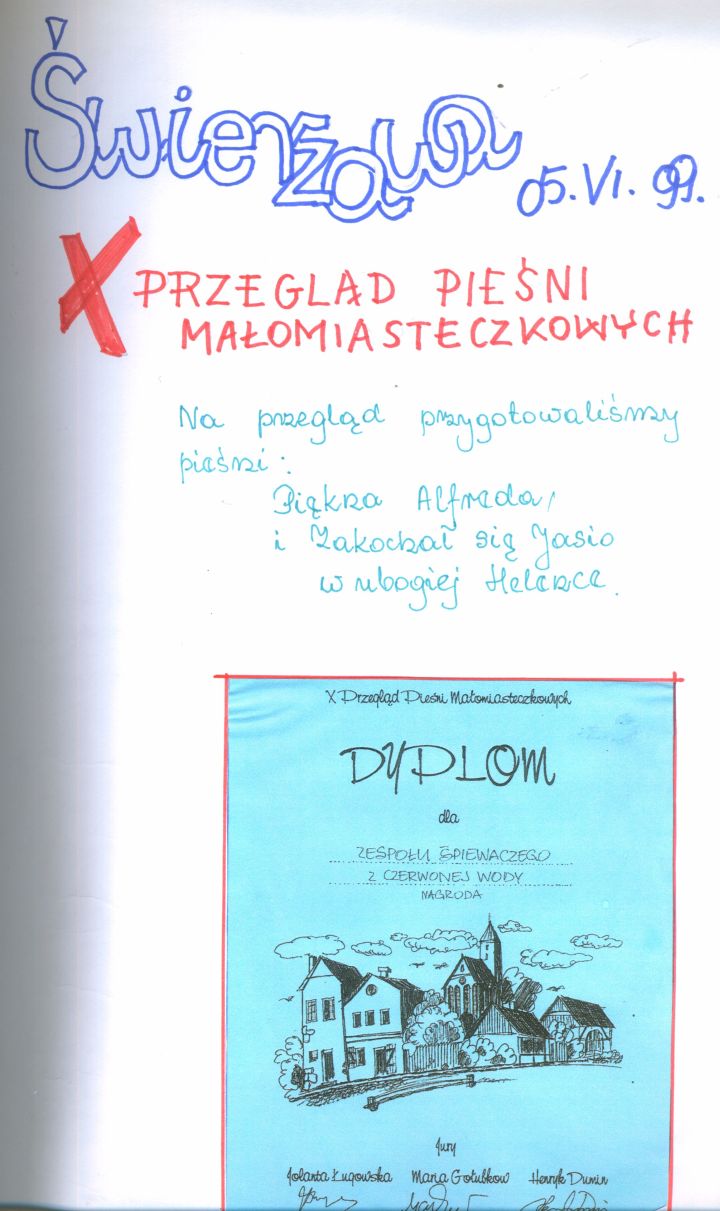 Świerzawa 05.VI.99.
X PRZEGLĄD PIEŚNI
MAŁOMIASTECZKOWYCH
Na przegląd przygotowaliśmy
pieśni:
Piękna Alfreda,
i Zakochał się Jasio
w ubogiej Helence.
X Przegląd Pieśni Małomiasteczkowych
DYPLOM
dla
ZESPOŁU ŚPIEWACZEGO
Z CZERWONEJ WODY
NAGRODA
Jury
Jolanta Ługowska Maria Gołubkow Henryk Dumin